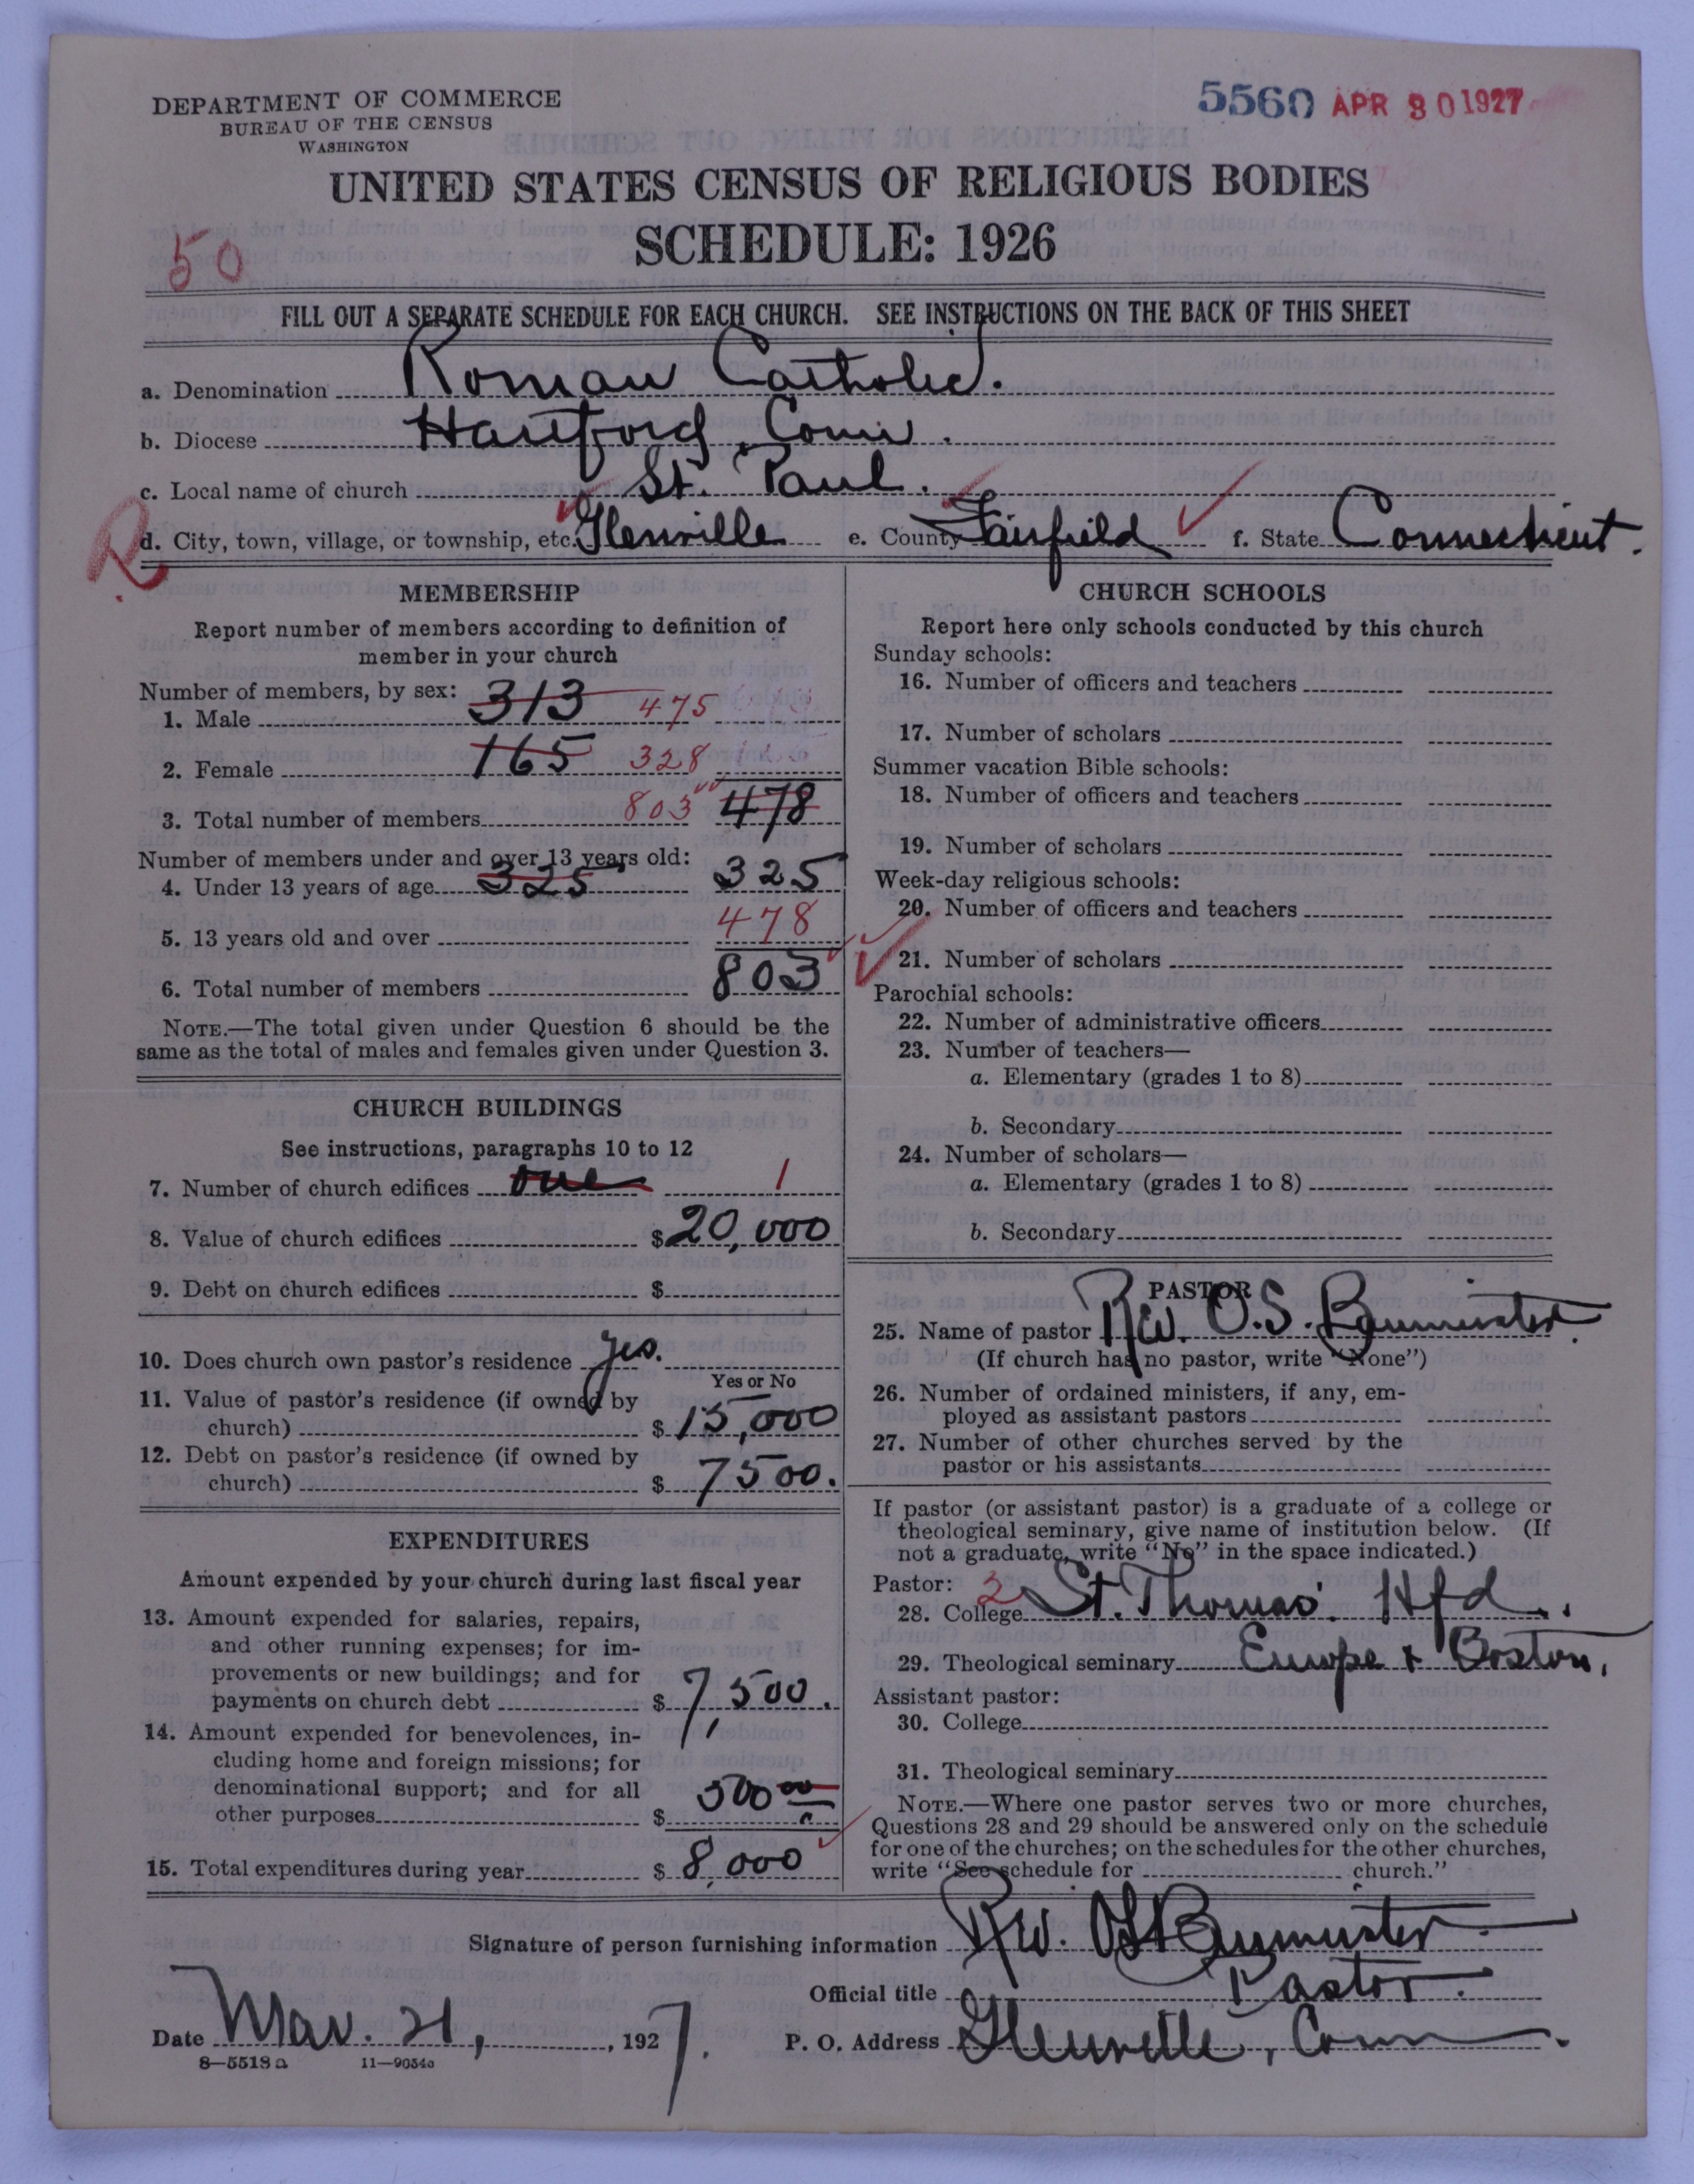 DEPARTMENT OF COMMERCE
BUREAU OF THE CENSUS
WASHINGTON
5560 APR 30 1927
UNITED STATES CENSUS OF RELIGIOUS BODIES
SCHEDULE: 1926
50
FILL OUT A SEPARATE SCHEDULE FOR EACH CHURCH. SEE INSTRUCTIONS ON THE BACK OF THIS SHEET
a. Denomination Roman Catholic.
b. Diocese Hartford, Conn.
c. Local name of church St. Paul.
R
d. City, town, village, or township, etc. Glenville e. County Fairfield f. State Connecticut.
MEMBERSHIP
Report number of members according to definition of
member in your church
Number of members, by sex:
1. Male 313 475
2. Female 165 328
3. Total number of members 803 478
Number of members under and over 13 years old:
4. Under 13 years of age 325 325
5. 13 years old and over 478
6. Total number of members 803
NOTE.—The total given under Question 6 should be the
same as the total of males and females given under Question 3.
CHURCH BUILDINGS
See instructions, paragraphs 10 to 12
7. Number of church edifices one 1
8. Value of church edifices $20,000
9. Debt on church edifices $
10. Does church own pastor's residence yes.
Yes or No
11. Value of pastor's residence (if owned by
church) $ 15,000
12. Debt on pastor's residence (if owned by
church) $ 7500.
EXPENDITURES
Amount expended by your church during last fiscal year
13. Amount expended for salaries, repairs,
and other running expenses; for im-
provements or new buildings; and for
payments on church debt $ 7,500.
14. Amount expended for benevolences, in-
cluding home and foreign missions; for
denominational support; and for all
other purposes $ 500 00
15. Total expenditures during year $ 8,000
CHURCH SCHOOLS
Report here only schools conducted by this church
Sunday schools:
16. Number of officers and teachers
17. Number of scholars
Summer vacation Bible schools:
18. Number of officers and teachers
19. Number of scholars
Week-day religious schools:
20. Number of officers and teachers
21. Number of scholars
Parochial schools:
22. Number of administrative officers
23. Number of teachers—
a. Elementary (grades 1 to 8)
b. Secondary
24. Number of scholars—
a. Elementary (grades 1 to 8)
b. Secondary
PASTOR
25. Name of pastor Rev. O.S. Baumeister.
(If church has no pastor, write "None")
26. Number of ordained ministers, if any, em-
ployed as assistant pastors
27. Number of other churches served by the
pastor or his assistants
If pastor (or assistant pastor) is a graduate of a college or
theological seminary, give name of institution below. (If
not a graduate, write "No" in the space indicated.)
Pastor: 2
28. College St. Thomas' Hfd.
29. Theological seminary Europe & Boston.
Assistant pastor:
30. College
31. Theological seminary
NOTE.—Where one pastor serves two or more churches,
Questions 28 and 29 should be answered only on the schedule
for one of the churches; on the schedules for the other churches,
write "See schedule for church."
Signature of person furnishing information Rev. OS Baumeister
Official title Pastor.
Date Mar. 21, 1927. P. O. Address Glenville, Conn.
8—5518a 11—9054a